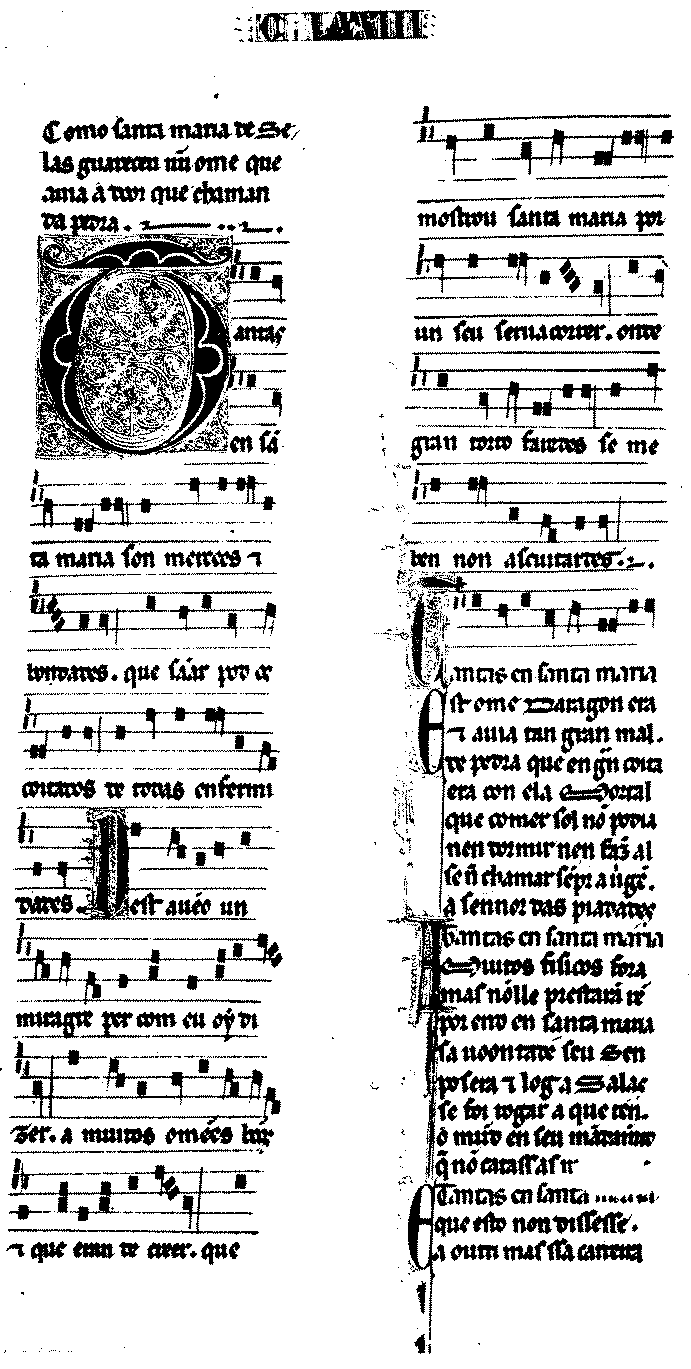 C LXXIII
Como santa maria de Se
las guareceu un ome que
auia a door que chaman
da pedra.
Tantas
en sã
ta maria son merçees ⁊
bondades. que sãar pod os
coitados de todas enfermi
dades. Dest auẽo un
miragre per com eu oý di
zer. a muitos omẽes bõos
⁊ que eran de creer. que
mostrou santa maria por
un seu seruaconer. onde
gran torto faredes se me
ben non ascuitardes.
Tantas en santa maria
Est ome Daragon era
⁊ auia tan gran mal.
de pedra que en grã coita
era con ela Mortal
que comer sol nõ podia
nen dormir nen fazer al
se nõ chamar sẽpr a uirgẽ.
a sennor das piadades
Tantas en santa maria
Muitos fisicos fora
mas nõlle prestarã rẽ
por end en santa maria
sa uoontade seu Sen
posera ⁊ log a Salas
se foi rogar a que ten.
o mundo en seu mãdamento
q̃ nõ catassas
Tantas en santa
E que esto non dissesse.
a outri mas ssa cantiga